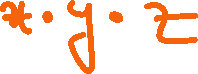 x·y·z